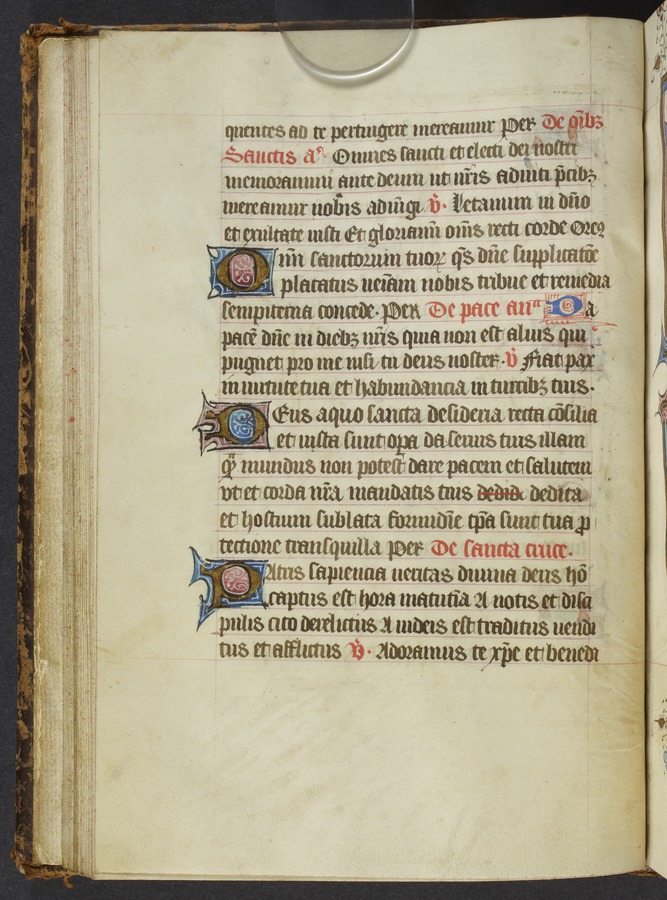 quentes ad te pertingere mereamur Per De oı̅bꝫ
Sanctis aᵃ Omnes sancti et electi dei nostri
memoramini ante deum ut nr̄is adiuti p̄cibꝫ
mereamur uobis adiu̅gi. v̄. Letamini in dn̄o
et exultate iusti Et gloriami om̄s recti corde Oreꝫ
Om̄i sanctorum tuoꝝ qs̄ dn̄e supplicatōe
placatus ueniam nobis tribue et remedia
sempiterna concede. Per De pace anᵃ Da
pacē dn̄e in diebꝫ nr̄is quia non est alius qui
pugnet pro me nisi tu deus noster. v̄ Fiat pax
in uirtute tua et habundancia in turribꝫ tuis.
Deus a quo sancta desideria recta cōsilia
et iusta sunt oꝑa da seruis tuis illam
qᵃ̄ mundus non potest dare pacem et salutem
vt et corda nr̄a mandatis tuis dedita
et hostium sublata formidīe tp̄a sint tua ꝓ
tectione tranquilla Per De sancta cruce.
Patris sapiencia ueritas diuina deus hō
captus est hora matutīa A notis et disci
pulis cito derelictus A iudeis est traditus uendi
tus et afflictus v̄. Adoramus te xp̄e et benedi